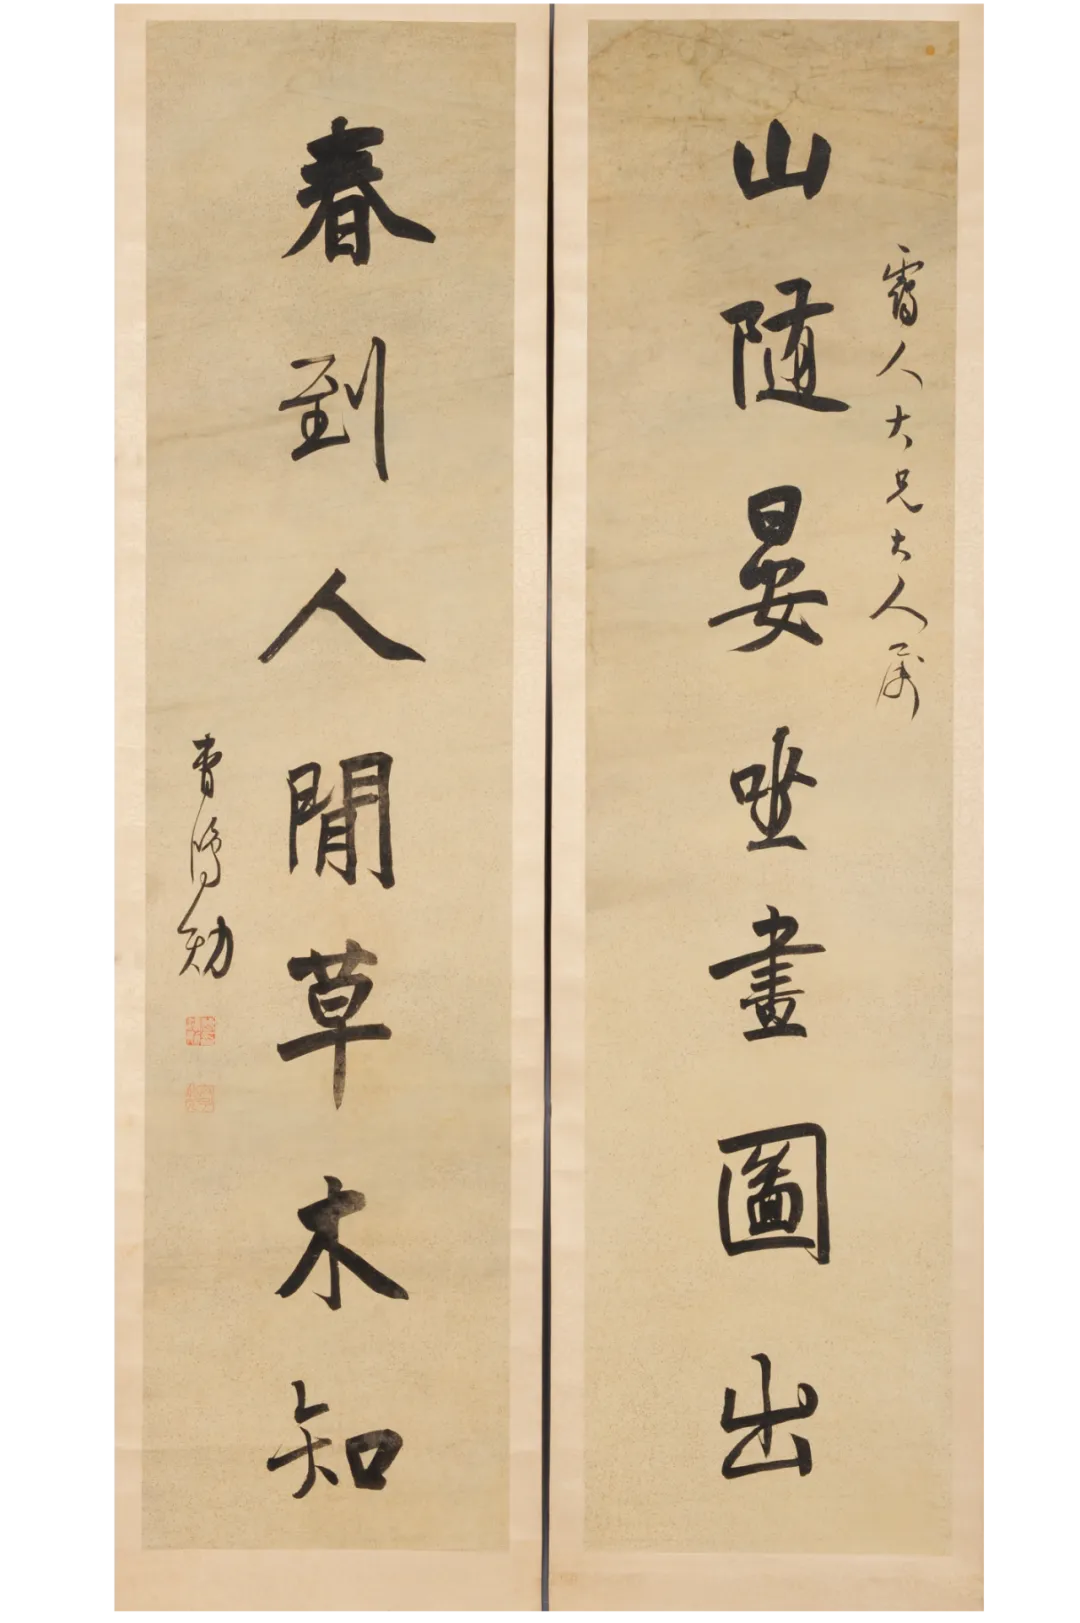 霱人大兄大人属
山随晏坐畫圖出
春到人間草木知
曹鴻勛